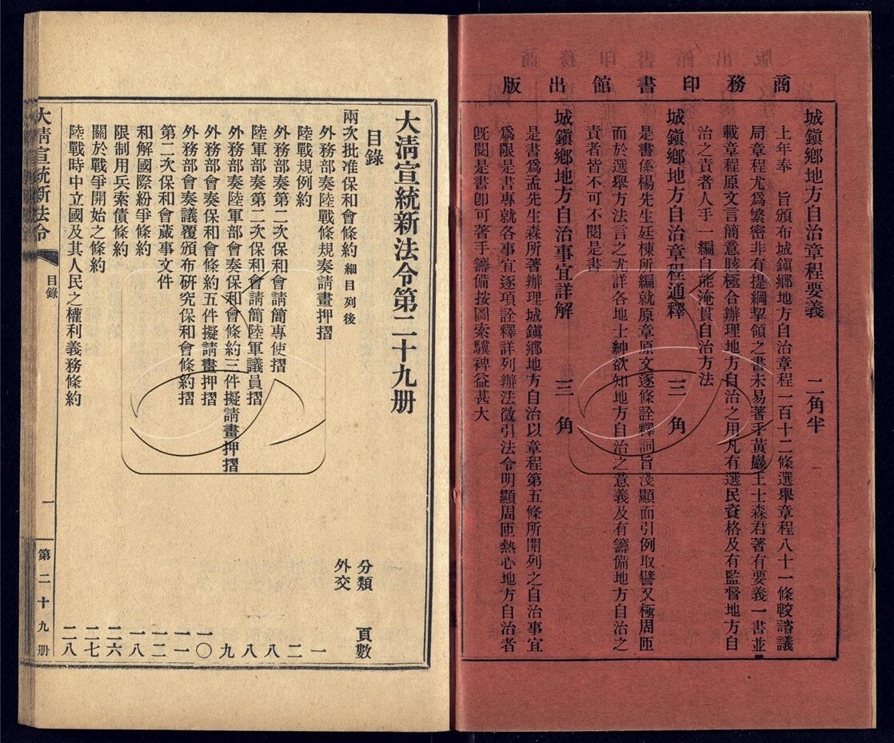 商務印書館出版
城鎭鄉地方自治章程要義 二角半
上年奉 旨頒布城鎭鄉地方自治章程一百十二條選舉章程八十一條較諮議
局章程尤爲繁密非有提綱挈領之書未易著手黃巖王士森君著有要義一書並
載章程原文言簡意賅極合辦理地方自治之用凡有選民資格及有監督地方自
治之責者人手一編自能淹貫自治方法
城鎭鄉地方自治章程通釋 三角
是書係楊先生廷棟所編就原章原文逐條詮釋詞旨淺顯而引例取譬又極周匝
而於選舉方法言之尤詳各地士紳欲知地方自治之意義及有籌備地方自治之
責者皆不可不閱是書
城鎭鄉地方自治事宜詳解 三角
是書爲孟先生森所著辦理城鎭鄉地方自治以章程第五條所開列之自治事宜
爲限是書專就各事宜逐項詮釋詳列辦法徵引法令明顯周匝熱心地方自治者
旣閱是書卽可著手籌備按圖索驥裨益甚大
大淸宣統新法令第二十九册
目錄
分類 頁數
兩次批准保和會條約 細目列後 外交
外務部奏陸戰條規奏請畫押摺 一
陸戰規例約 二
外務部奏第二次保和會請簡專使摺 八
陸軍部奏第二次保和會請簡陸軍議員摺 八
外務部奏陸軍部會奏保和會條約三件擬請畫押摺 九
外務部會奏保和會條約五件擬請畫押摺 一〇
外務部會奏議覆頒布硏究保和會條約摺 一一
第二次保和會蕆事文件 一二
和解國際紛爭條約 一八
限制用兵索債條約 二六
關於戰爭開始之條約 二七
陸戰時中立國及其人民之權利義務條約 二八
大淸宣統新法令 目錄 一 第二十九册